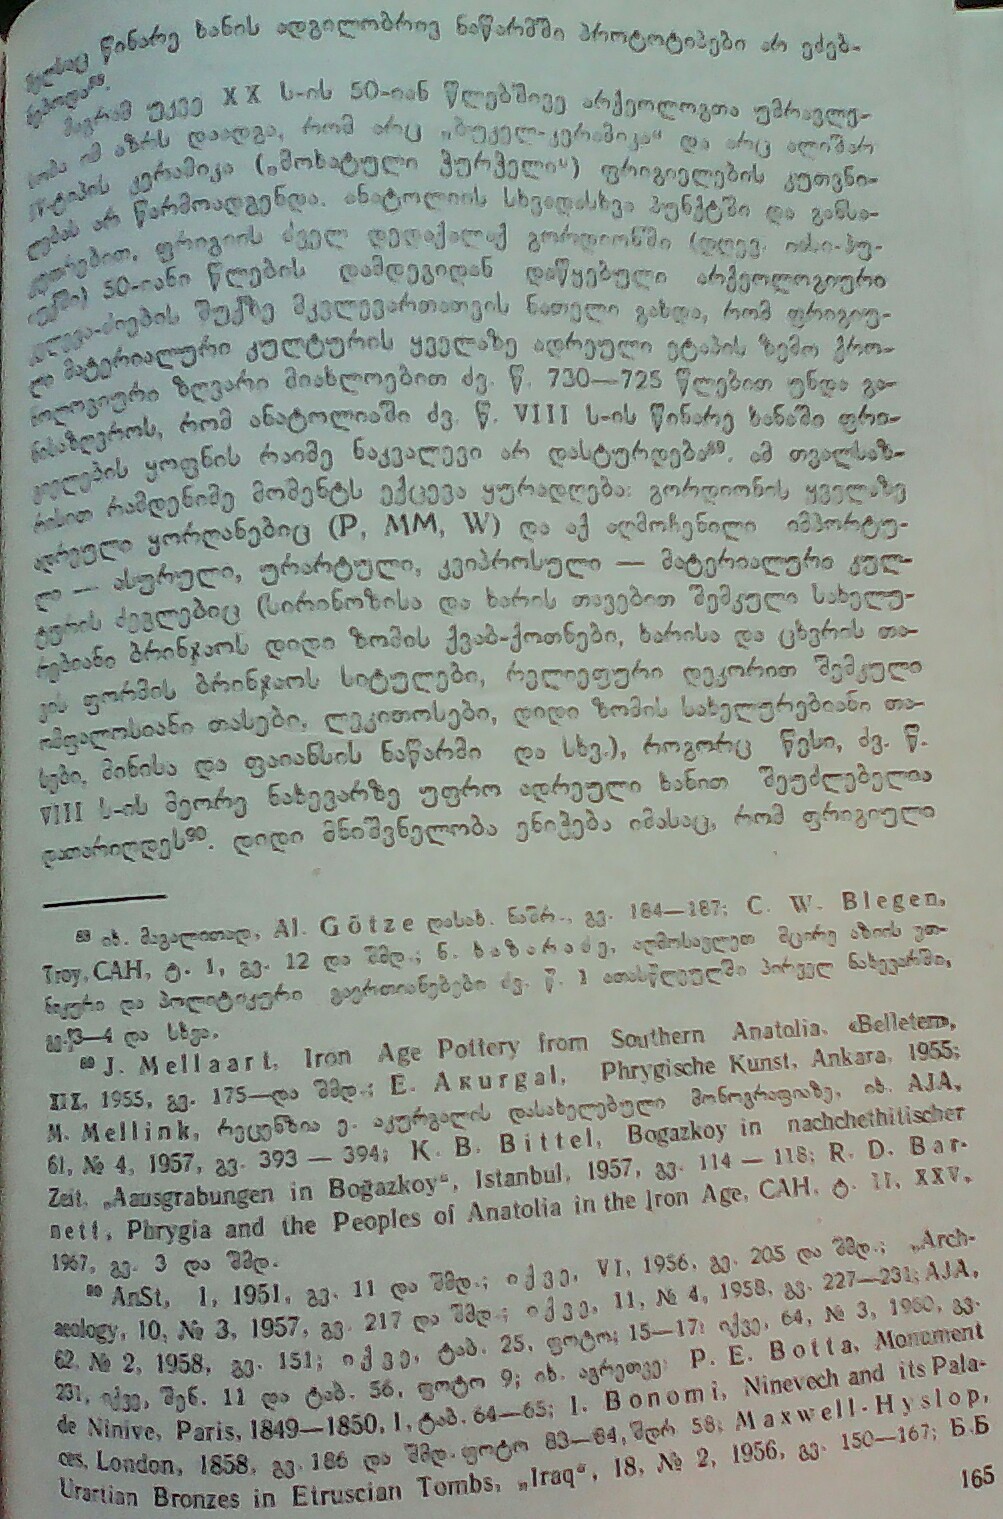 მელსაც წინარე ხანის ადგილობრივ ნაწარმში პროტოტიპები არ ეძებ-
ნებოდა⁸⁸.
მაგრამ უკვე XX ს-ის 50-იან წლებშივე არქეოლოგთა უმრავლე-
სობა იმ აზრს დაადგა, რომ არც „ბუკელ-კერამიკა“ და არც ალიშარ
IV-ტიპის კერამიკა („მოხატული ჭურჭელი“) ფრიგიელების კუთვნი-
ლებას არ წარმოადგენდა. ანატოლიის სხვადასხვა პუნქტში და განსა-
კუთრებით, ფრიგიის ძველ დედაქალაქ გორდიონში (დღევ. იასი-ჰუ-
იუქში) 50-იანი წლების დამდეგიდან დაწყებული არქეოლოგიური
კვლევა-ძიების შუქზე მკვლევართათვის ნათელი გახდა, რომ ფრიგიუ-
ლი მატერიალური კულტურის ყველაზე ადრეული ეტაპის ზემო ქრო-
ნოლოგიური ზღვარი მიახლოებით ძვ. წ. 730—725 წლებით უნდა გა-
ნისაზღვროს, რომ ანატოლიაში ძვ. წ. VIII ს-ის წინარე ხანაში ფრი-
გიელების ყოფნის რაიმე ნაკვალევი არ დასტურდება⁸⁹. ამ თვალსაზ-
რისით რამდენიმე მომენტს ექცევა ყურადღება: გორდიონის ყველაზე
ადრეული ყორღანებიც (P, MM, W) და აქ აღმოჩენილი იმპორტუ-
ლი — ასურული, ურარტული, კვიპროსული — მატერიალური კულ-
ტურის ძეგლებიც (სირინოზისა და ხარის თავებით შემკული სახელუ-
რებიანი ბრინჯაოს დიდი ზომის ქვაბ-ქოთნები, ხარისა და ცხვრის თა-
ვის ფორმის ბრინჯაოს სიტულები, რელიეფური დეკორით შემკული
ომფალოსიანი თასები, ლეკითოსები, დიდი ზომის სახელურებიანი თა-
სები, მინისა და ფაიანსის ნაწარმი და სხვ.), როგორც წესი, ძვ. წ.
VIII ს-ის მეორე ნახევარზე უფრო ადრეული ხანით შეუძლებელია
დათარიღდეს⁹⁰. დიდი მნიშვნელობა ენიჭება იმასაც, რომ ფრიგიული
⁸⁸ იხ. მაგალითად, Al. Götze დასახ. ნაშრ., გვ. 184—187; C. W. Blegen,
Troy, CAH, ტ. 1, გვ. 12 და შმდ.; ნ. ხაზარაძე, აღმოსავლეთ მცირე აზიის ეთ-
ნიკური და პოლიტიკური გაერთიანებები ძვ. წ. I ათასწლეულში პირველ ნახევარში,
გვ. 3—4 და სხვა.
⁸⁹ J. Mellaart, Iron Age Pottery from Southern Anatolia. «Belleten»,
XIX, 1955, გვ. 175—და შმდ.; E. Akurgal, Phrygische Kunst, Ankara, 1955;
M. Mellink, რეცენზია ე. აკურგალის დასახელებული მონოგრაფიაზე, იხ. AJA,
61, № 4, 1957, გვ. 393 — 394; K. B. Bittel, Bogazkoy in nachchethitischer
Zeit, „Aausgrabungen in Boğazkoy“, Istanbul, 1957, გვ. 114 — 118; R. D. Bar-
nett, Phrygia and the Peoples of Anatolia in the Iron Age, CAH, ტ. II, XXV,
1967, გვ. 3 და შმდ.
⁹⁰ AnSt, 1, 1951, გვ. 11 და შმდ.; იქვე, VI, 1956, გვ. 205 და შმდ.; „Arch-
aeology, 10, № 3, 1957, გვ. 217 და შმდ.; იქვე, 11, № 4, 1958, გვ. 227—231; AJA,
62, № 2, 1958, გვ. 151; იქვე, ტაბ. 25, ფოტო; 15—17; იქვე, 64, № 3, 1960, გვ.
231, იქვე, შენ. 11 და ტაბ. 56, ფოტო 9; იხ. აგრეთვე: P. E. Botta, Monument
de Ninive, Paris, 1849—1850, I, ტაბ. 64—65; I. Bonomi, Ninevech and its Pala-
ces, London, 1858, გვ. 186 და შმდ. ფოტო 83—84, შდრ 58; Maxwell-Hyslop,
Urartian Bronzes in Etruscian Tombs, „Iraq“, 18, № 2, 1956, გვ. 150—167; Б. Б
165